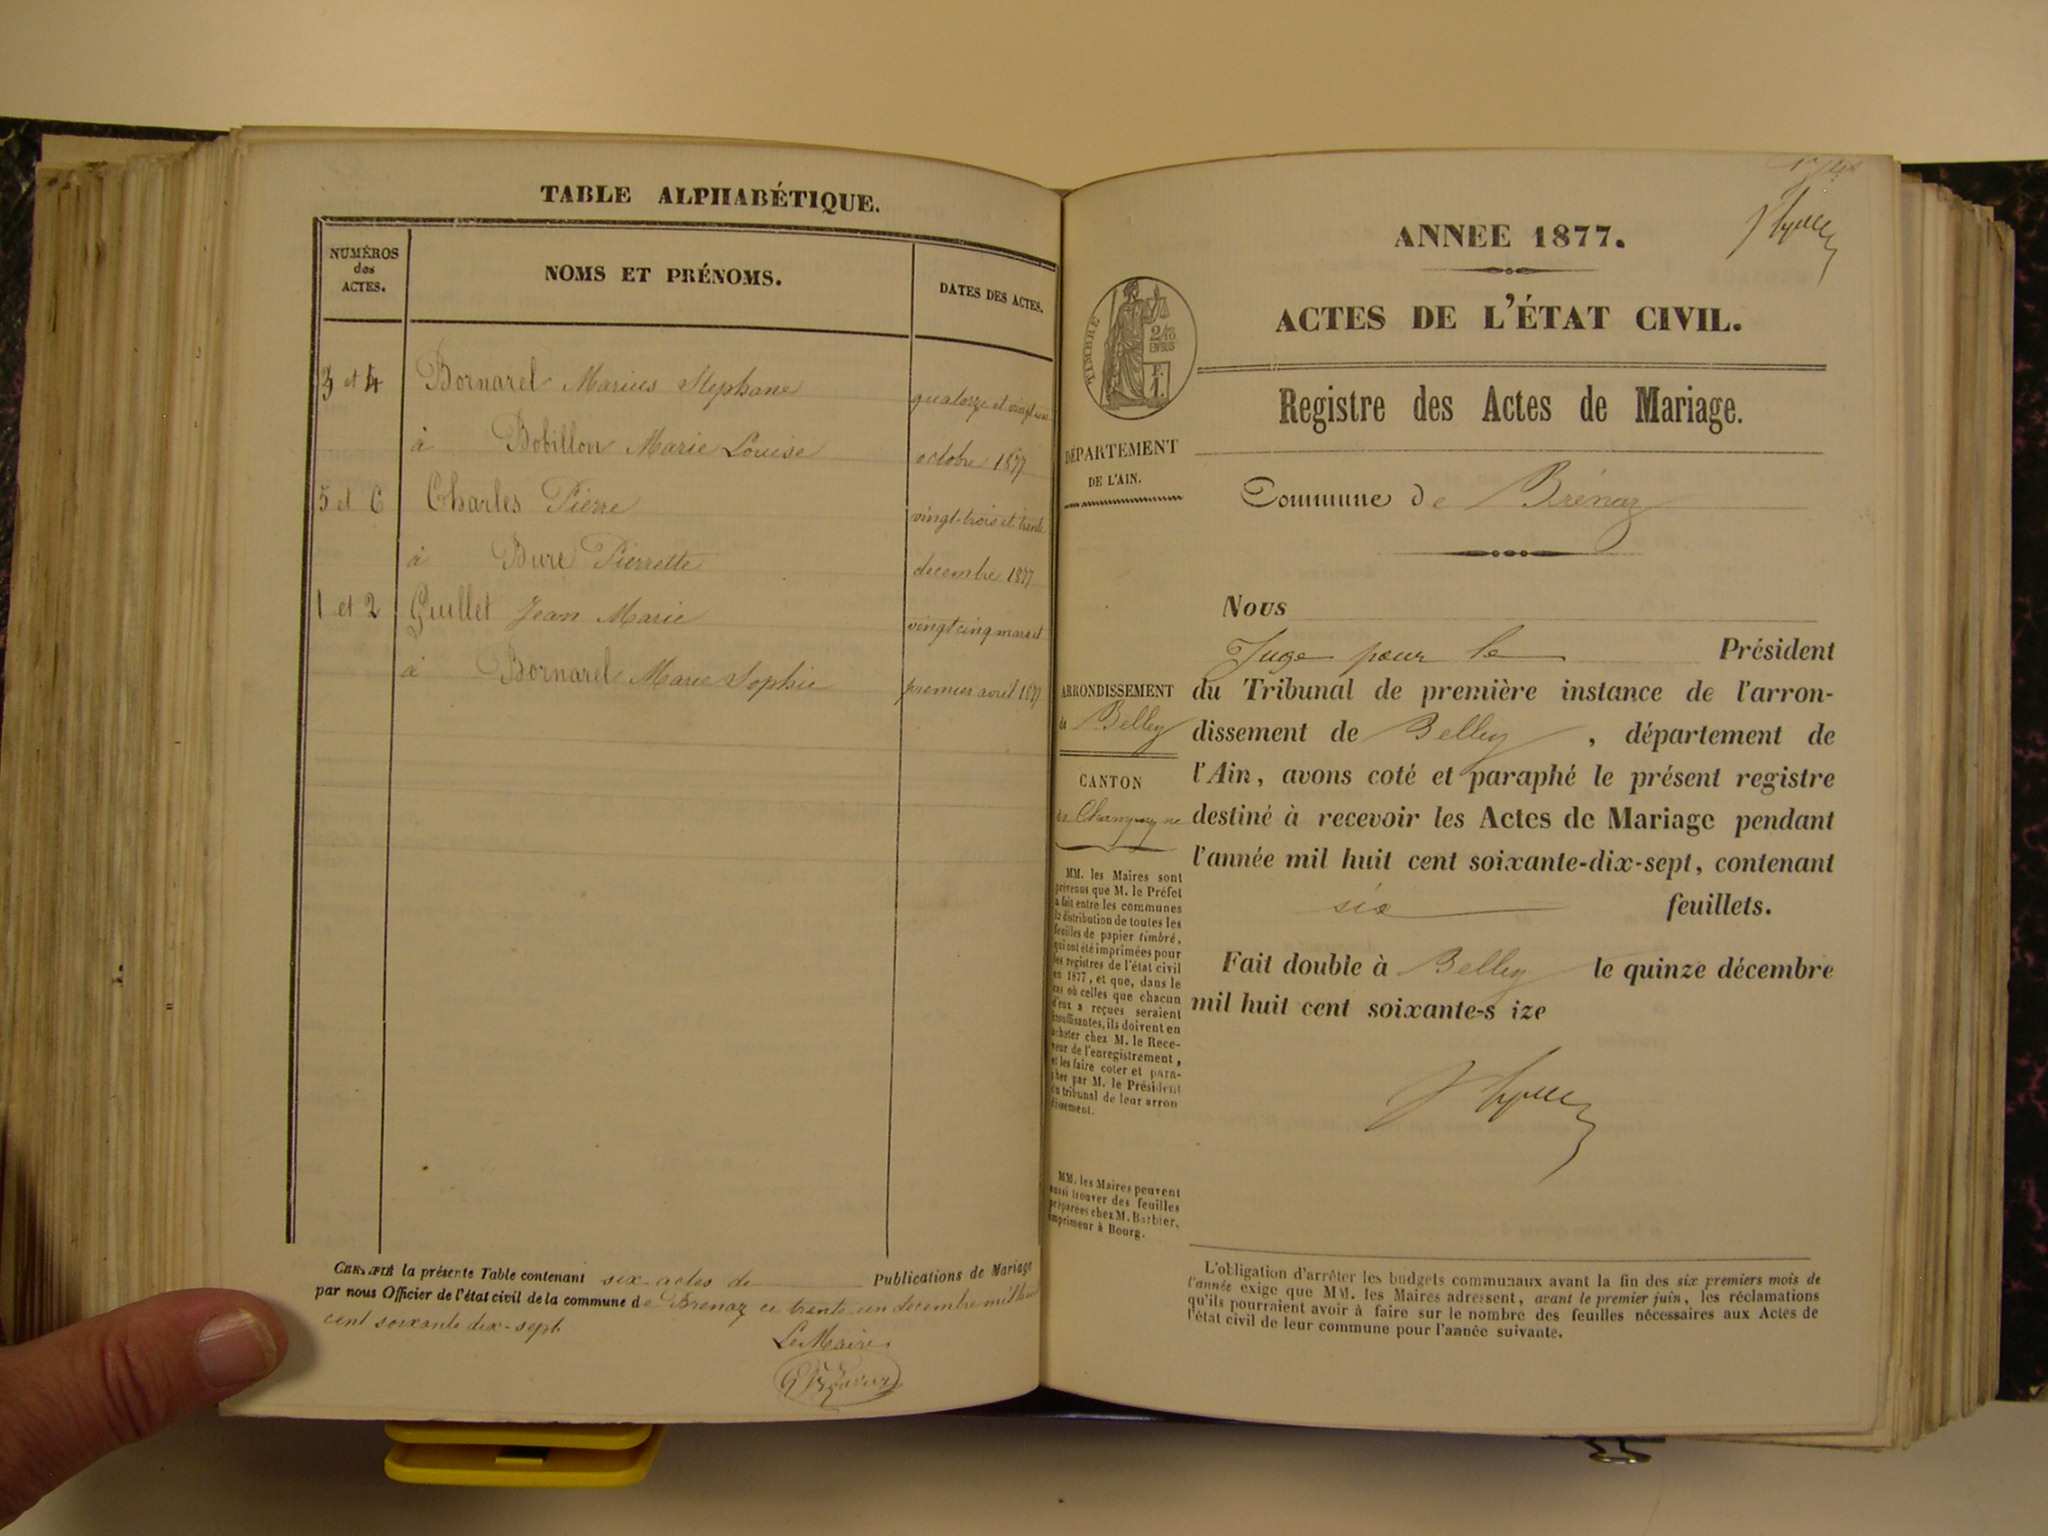 TABLE ALPHABÉTIQUE.
NUMÉROS
des
ACTES.
NOMS ET PRÉNOMS.
DATES DES ACTES.
3 et 4 Bornarel Marius Stephane quatorze et vingt un
à Bobillon Marie Louise octobre 1877
5 et 6 Charles Pierre vingt-trois et trente
à Bure Pierrette decembre 1877
1 et 2 Guillet Jean Marie vingt cinq mars et
à Bornarel Marie Sophie premier avril 1877
CERTIFIÉ la présente Table contenant six actes de Publications de Mariage
par nous Officier de l'état civil de la commune de Brenaz ce trente un decembre mil huit
cent soixante dix-sept
Le Maire
ANNEE 1877.
ACTES DE L'ÉTAT CIVIL.
TIMBRE
2/10
EN SUS
Registre des Actes de Mariage.
DÉPARTEMENT
DE L'AIN.
Commune de Brénaz
Nous
Juge pour le Président
du Tribunal de première instance de l'arron-
dissement de Belley, département de
l'Ain, avons coté et paraphé le présent registre
destiné à recevoir les Actes de Mariage pendant
l'année mil huit cent soixante-dix-sept, contenant
six feuillets.
Fait double à Belley le quinze décembre
mil huit cent soixante-s ize
ARRONDISSEMENT
de Belley
CANTON
de Champagne
MM. les Maires sont
prévenus que M. le Préfet
a fait entre les communes
la distribution de toutes les
feuilles de papier timbré,
qui ont été imprimées pour
les registres de l'état civil
en 1877, et que, dans le
cas où celles que chacun
d'eux a reçues seraient
insuffisantes, ils doivent en
acheter chez M. le Rece-
veur de l'enregistrement,
et les faire coter et para-
pher par M. le Président
du tribunal de leur arron
dissement.
MM. les Maires peuvent
aussi trouver des feuilles
préparées chez M. Barbier,
imprimeur à Bourg.
L'obligation d'arrêter les budgets communaux avant la fin des six premiers mois de
l'année exige que MM. les Maires adressent, avant le premier juin, les réclamations
qu'ils pourraient avoir à faire sur le nombre des feuilles nécessaires aux Actes de
l'état civil de leur commune pour l'année suivante.